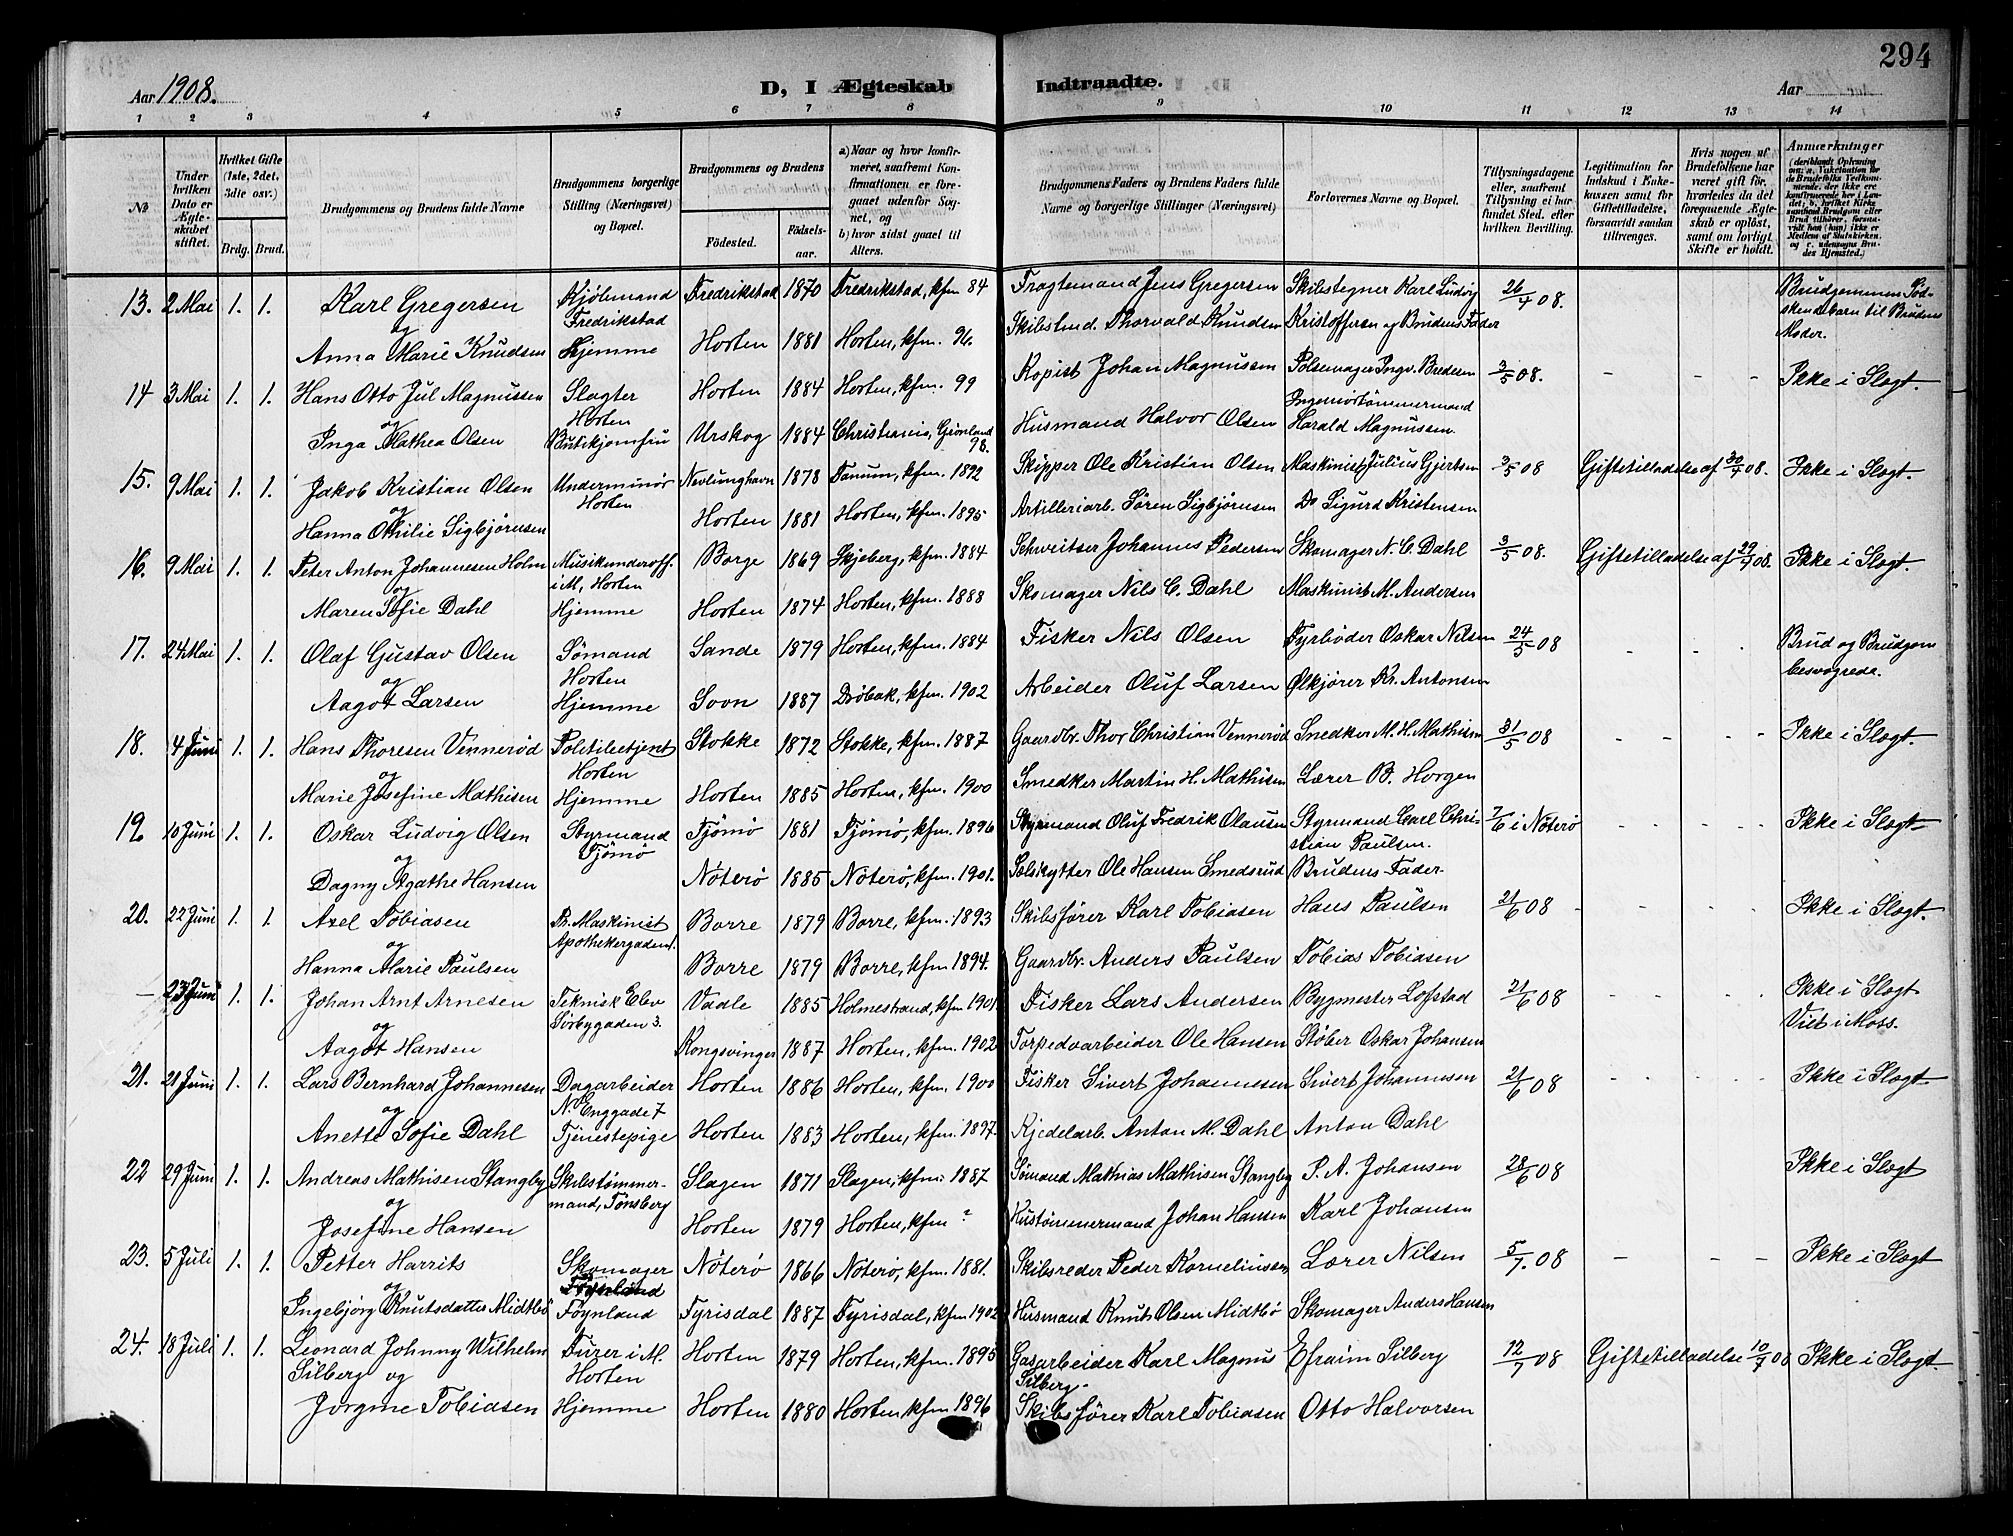 294
Aar 1908.
D, I Ægteskab Indtraadte.
Aar
1 2 3 4 5 6 7 8 9 10 11 12 13 14
№
Under hvilken Dato er Ægteskabet stiftet.
Hvilket Gifte (1ste, 2det, 3die osv.)
Brdg. Brud.
Brudgommens og Brudens fulde Navne
Brudgommens borgerlige Stilling (Næringsvei) og Bopæl.
Brudgommens og Brudens
Fødested.
Fødselsaar.
a) Naar og hvor konfirmeret, saafremt Konfirmationen er foregaaet udenfor Sognet, og
b) hvor sidst gaaet til Alters.
Brudgommens Faders og Brudens Faders fulde Navne og borgerlige Stillinger (Næringsvei)
Forlovernes Navne og Bopæl.
Tillysningsdagene eller, saafremt Tillysning ei har fundet Sted, efter hvilken Bevilling.
Legitimation for Indskud i Enkekassen samt for Giftetilladelse, forsaavidt saadan tiltrænges.
Hvis nogen af Brudefolkene har været gift før, hvorledes da det foregaaende Ægteskab er opløst, samt om lovligt Skifte er holdt.
Anmærkninger
13. 2 Mai 1. 1. Karl Gregersen Kjøbmand Fredrikstad Fredrikstad 1870 Fredrikstad, kfm 84 Fragtemand Jens Gregersen Skibsegner Karl Ludvig 26/4 08. Brudgommen Sødskendebarn til Brudens Moder.
og
Anna Marie Knudsen Hjemme Horten 1881 Horten, kfm. 96. Skibstmd. Thorvald Knudsen Kristoffersen og Brudens Fader
14 3 Mai 1. 1. Hans Otto Jul Magnussen Slagter Horten Horten 1884 Horten, kfm. 99 Kopist Johan Magnussen Pølsemager Ingv. Bredesen 3/5 08. - - - Ikke i Slægt.
og
Inga Mathea Olsen Butikjomfru Urskog 1884 Christiania, Grønland 98. Husmand Halvor Olsen Ingeniørtømmermand Harald Magnussen.
15. 9 Mai 1. 1. Jakob Kristian Olsen Underminør Horten Nevlunghavn 1878 Tanum, kfm. 1892 Skipper Ole Kristian Olsen Maskinist Julius Gjertsen 3/5 08 Giftetilladelse af 30/4 08. Ikke i Slægt.
og
Hanna Othilie Sigbjørnsen Horten 1881 Horten, kfm. 1895 Artilleriarb. Søren Sigbjørnsen Do Sigurd Kristensen
16. 9 Mai 1. 1. Peter Anton Johannesen Holm Musikunderoff. i M, Horten Borge 1869 Skjeberg, kfm. 1884 Schweitser Johannes Pedersen Skomager N. C. Dahl 3/5 08. Giftetilladelse af 29/4 08. Ikke i Slægt.
og
Maren Sofie Dahl Hjemme Horten 1874 Horten, kfm. 1888 Skomager Nils C. Dahl Maskinist M. Andersen
17. 24 Mai 1. 1. Olaf Gustav Olsen Sømand Horten Sande 1879 Horten, kfm. 1884 Fisker Nils Olsen Fyrbøder Oskar Nilsen 24/5 08 - - - Brud og Brudgom besvogrede.
og
Aagot Larsen Hjemme Sovn 1887 Drøbak, kfm. 1902 Arbeider Oluf Larsen Ølkjører Kr. Antonsen
18. 4 Juni 1. 1. Hans Thoresen Vennerød Politibetjent Horten Stokke 1872 Stokke, kfm. 1887 Gaardbr. Thor Christian Vennerød Snedker M. H. Mathisen 31/5 08 - - - Ikke i Slægt.
og
Marie Josefine Mathisen Hjemme Horten 1885 Horten, kfm. 1900 Smedker Martin H. Mathisen Lærer B. Horgen
19 10 Juni 1. 1. Oskar Ludvig Olsen Styrmand Tjømø Tjømø 1881 Tjømø, kfm. 1896 Styrmand Oluf Fredrik Olausen Styrmand Carl Christian Paulsen. 7/6 i Nøterø - - - Ikke i Slægt
og
Dagny Agathe Hansen Nøterø 1885 Nøterø, kfm. 1901. Selskytter Ole Hansen Smedsrud Brudens Fader
20. 22 Juni 1. 1. Axel Tobiasen Th. Maskinist Apothekergaden 1. Borre 1879 Borre, kfm. 1893 Skibsfører Karl Tobiasen Hans Paulsen 21/6 08 - - - Ikke i Slægt.
og
Hanna Marie Paulsen Borre 1879 Borre, kfm. 1894. Gaardbr. Anders Paulsen Tobias Tobiasen
- 23 Juni 1. 1. Johan Arnt Arnesen Teknisk Elev Sørbygaden 3. Vaale 1885 Holmestrand, kfm 1901. Fisker Lars Andersen Bygmester Lofstad 21/6 08 - - - Ikke i Slægt Viet i Moss.
og
Aagot Hansen Kongsvinger 1887 Horten, kfm. 1902 Torpedoarbeider Ole Hansen Støber Oskar Johansen
21. 21 Juni 1. 1. Lars Bernhard Johannesen Dagarbeider N. Enggade 7 Horten 1886 Horten, kfm. 1900 Fisker Sivert Johannesen Sivert Johannesen 21/6 08 - - - Ikke i Slægt
og
Anette Sofie Dahl Tjenestepige Horten 1883 Horten, kfm. 1897. Kjedelarb. Anton M. Dahl Anton Dahl
22 29 Juni 1. 1. Andreas Mathisen Stangby Skibstømmermand, Tønsberg Slagen 1871 Slagen, kfm. 1887 Sømand Mathias Mathisen Stangby P. A. Johansen 28/6 08 Ikke i Slægt
og
Josefine Hansen Horten 1879 Horten, kfm ? Hustømmermand Johan Hansen Karl Johansen
23. 5 Juli 1. 1. Petter Harrits Skomager Nøterø 1866 Nøterø, kfm. 1881. Skibsreder Peder Kornelinssen Lærer Nilsen 5/7 08 - - - Ikke i Slægt
og
Ingebjørg Knutsdatter Midtbø Føynland Fyrisdal 1887 Fyrisdal, kfm 1902 Husmand Knut Olsen Midtbø Skomager Anders Hansen
24. 18 Juli 1. 1. Leonard Johnny Wilhelm Silberg og Furer i M. Horten Horten 1879 Horten, kfm. 1895 Gasarbeider Karl Magnus Silberg Efraim Silberg 12/7 08 Giftetilladelse 10/7 08 Ikke i Slægt.
Jørgine Tobiasen Hjemme Horten 1880 Horten, kfm 1896 Skibsfører Karl Tobiasen Otto Halvorsen